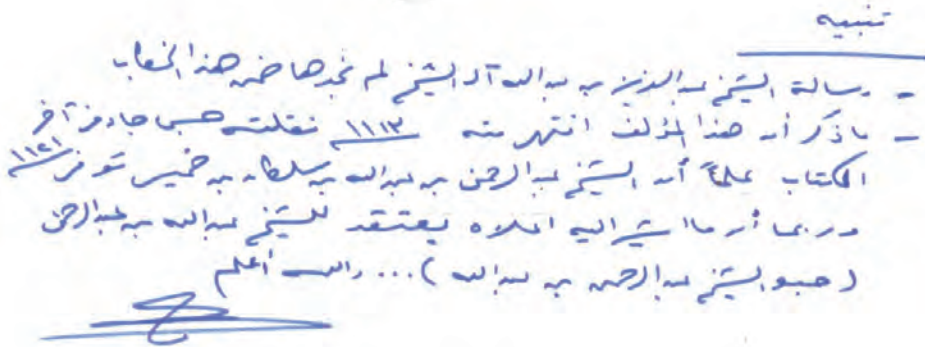 تنبيه
- رسالة الشيخ عبدالعزيز بن عبدالله آل الشيخ لم نجدها ضمن هذا الخطاب
- ما ذكر أن هذا المؤلف انتهى منه ١١١٣ نقلته حسب ما جاء في آخر
الكتاب علماً أن الشيخ عبدالرحمن بن عبدالله بن سلطان بن خميس توفي ١١٢١
وربما أن ما اشير اليه اعلاه يعتقد للشيخ عبدالله بن عبدالرحمن
( الشيخ عبدالرحمن بن عبدالله ) ... والله أعلم